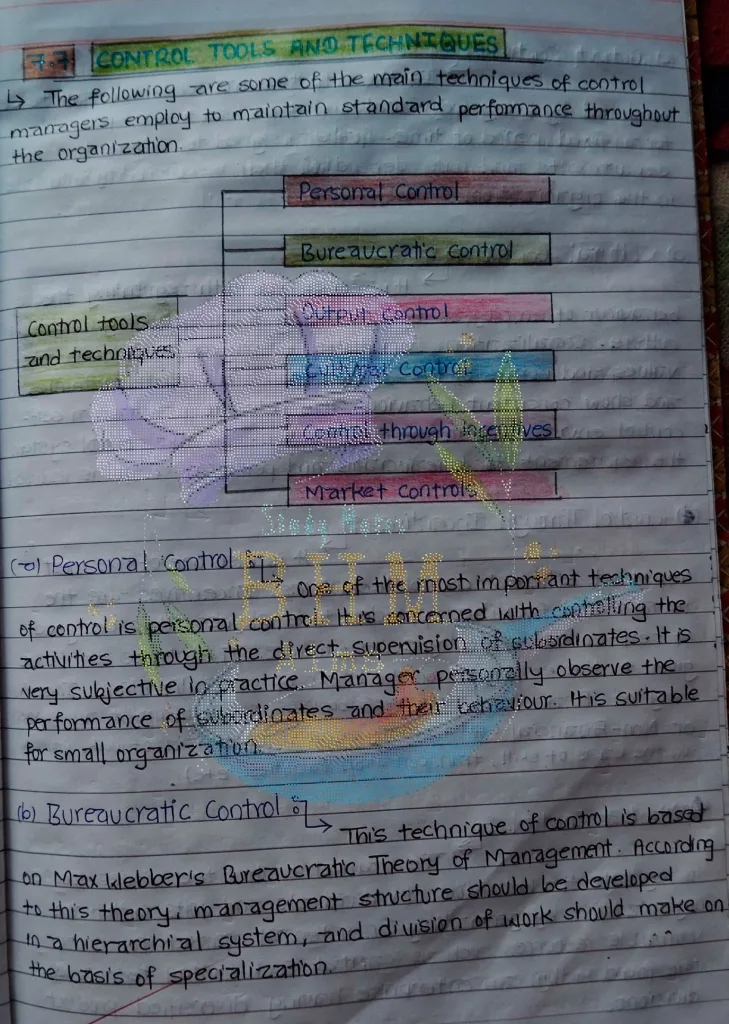 7.7 CONTROL TOOLS AND TECHNIQUES
↳ The following are some of the main techniques of control
managers employ to maintain standard performance throughout
the organization.
Personal Control
Bureaucratic control
Output control
Control tools
and techniques
Cultural Control
Control through Incentives
Market Controls
Study Notes
(a) Personal Control :
BHM
↳ One of the most important techniques
of control is personal control. It is concerned with controlling the
activities through the direct supervision of subordinates. It is
very subjective in practice. Manager personally observe the
performance of subordinates and their behaviour. It is suitable
for small organization.
(b) Bureaucratic Control :
↳ This technique of control is based
on Max Webber's Bureaucratic Theory of Management. According
to this theory, management structure should be developed
in a hierarchial system, and division of work should make on
the basis of specialization.